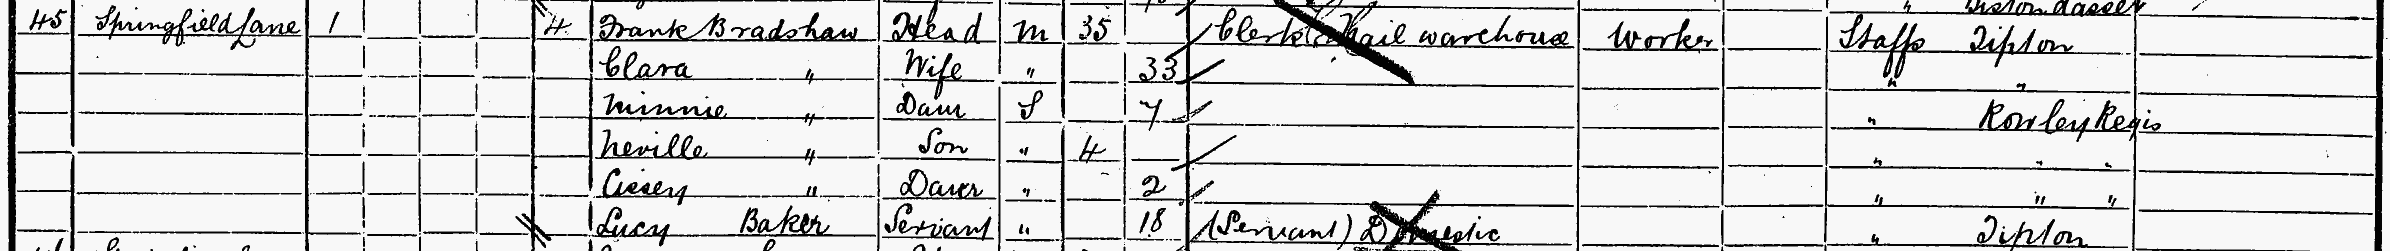 45 Springfield Lane 1 4 Frank Bradshaw Head M 35 Clerk Nail warehouse Worker Staffs Tipton
Clara " Wife " 33 " "
Minnie " Daur S 7 " Rowley Regis
Neville " Son " 4 " " "
Cissey " Daur " 2 " " "
Lucy Baker Servant " 18 (Servant) Domestic " Tipton